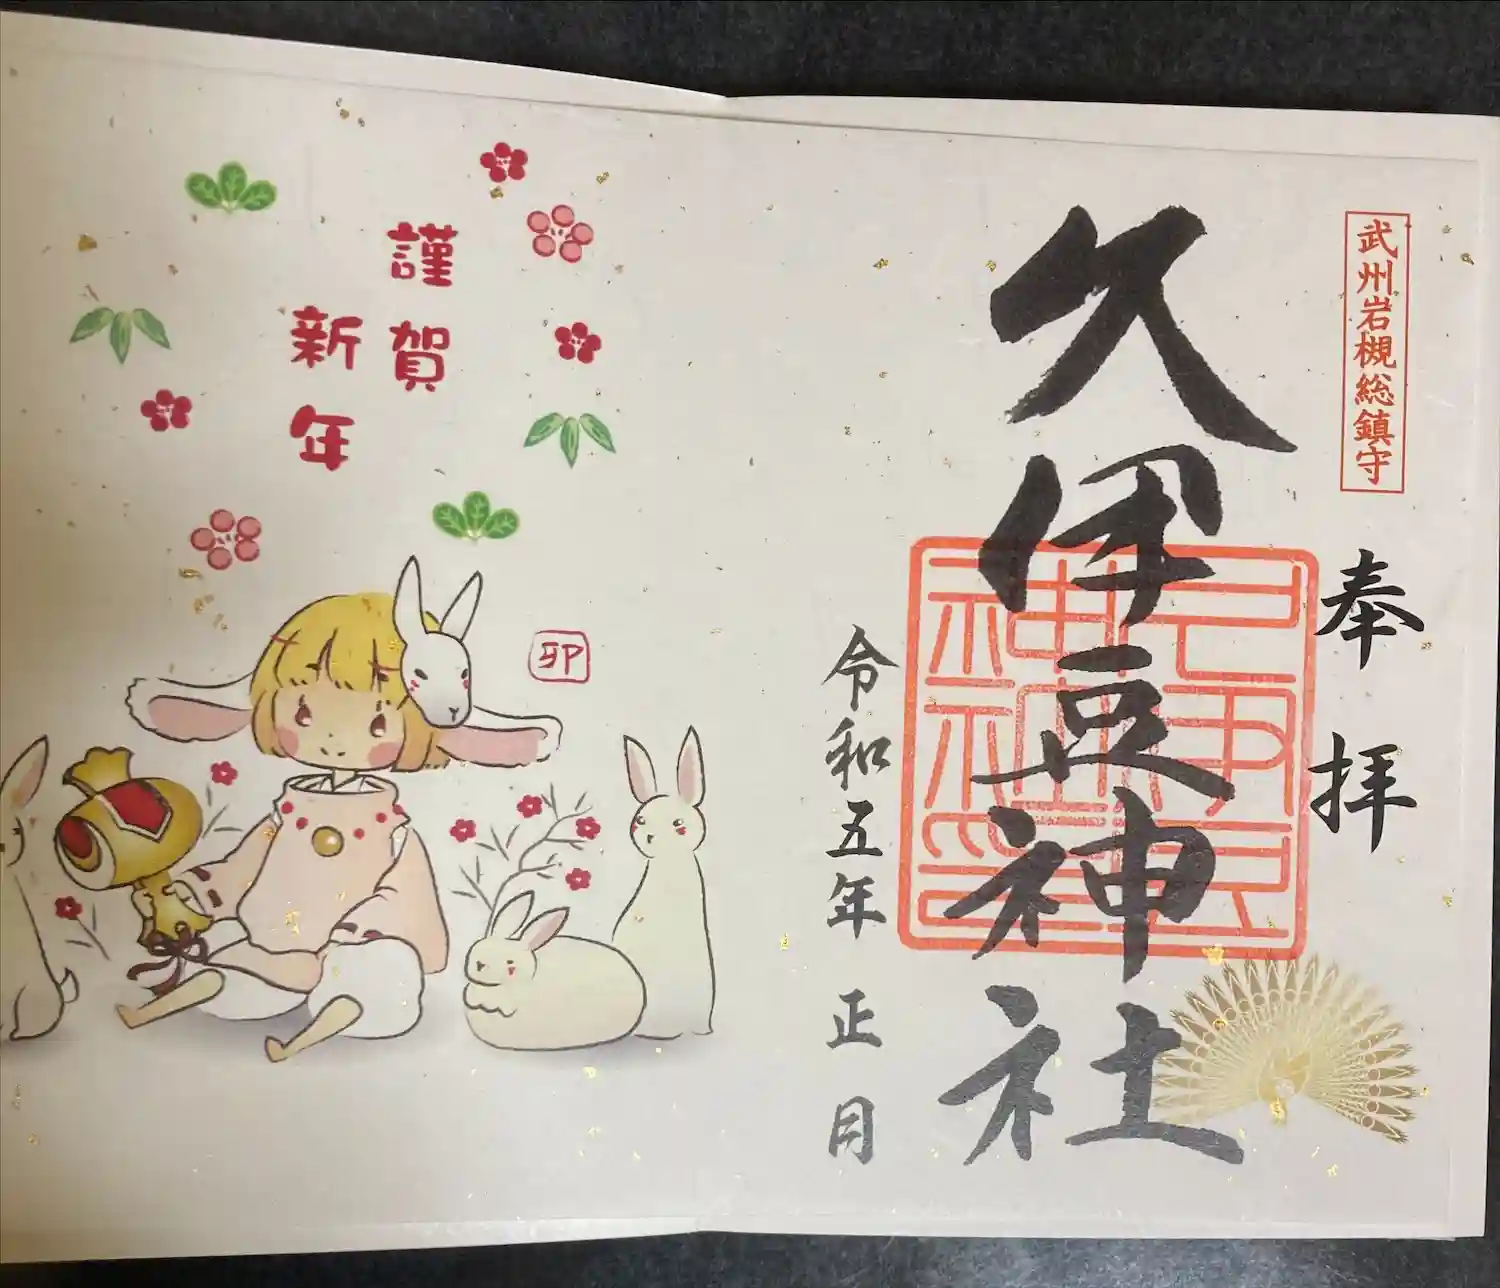 武州岩槻総鎮守
奉拝
久伊豆神社
令和五年正月
謹賀
新年
卯